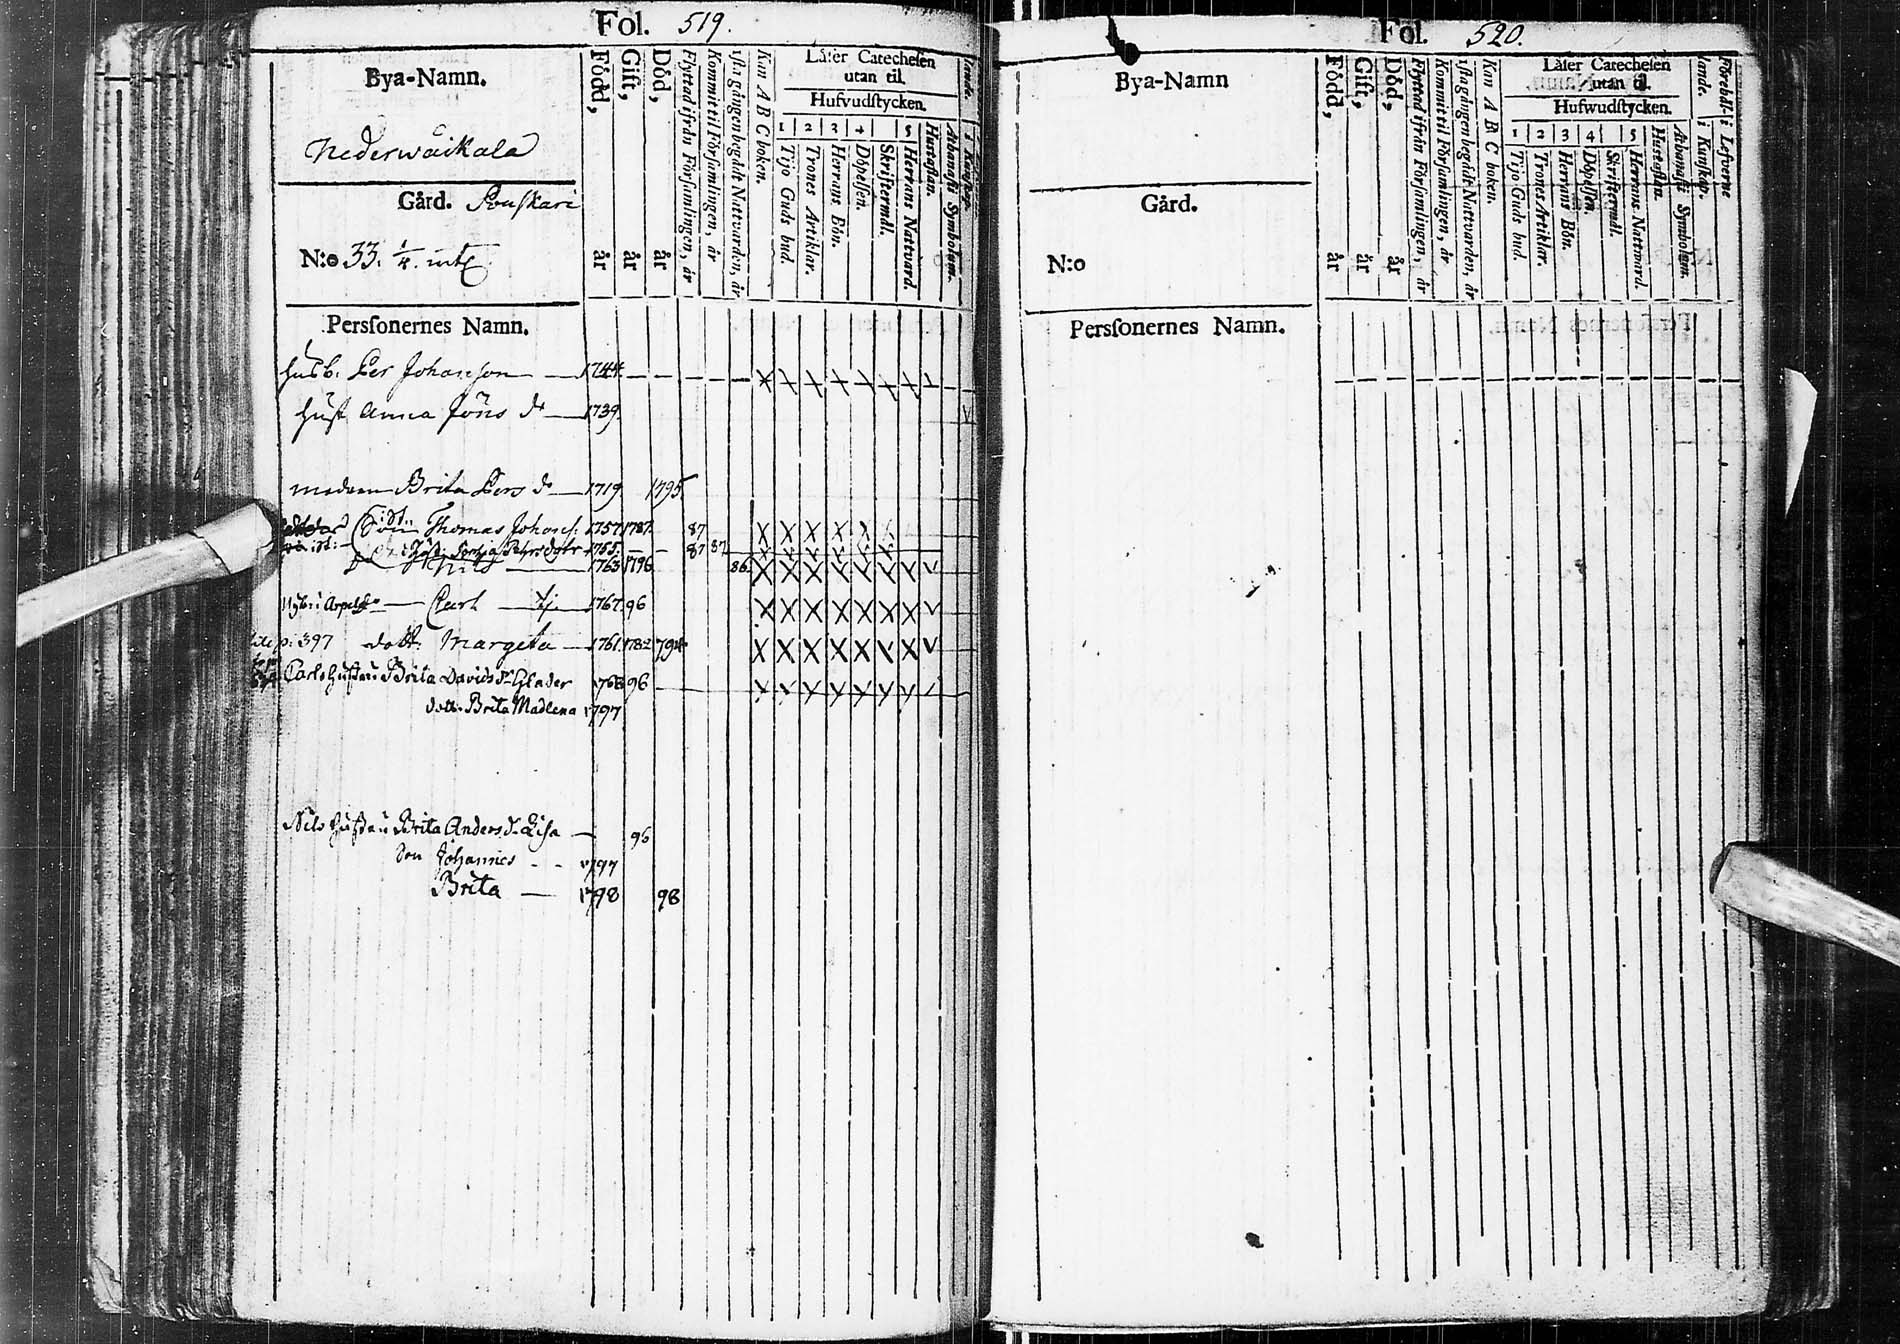 Fol. 519.
Bya-Namn.
Nederwaikala
Gård. Pouskari
N:o 33. 1/4. mtl
Född, år
Gift, år
Död, år
Flyttad ifrån Församlingen, år
Kommit til Församlingen, år
1sta gången begådt Nattvarden, år
Kan A B C boken.
Låser Catechesen
utan til.
Hufvudstycken.
1 2 3 4 5
Tijo Guds bud.
Trones Artiklar.
Herrans Bön.
Döpelsen.
Skriftermål.
Herrans Nattvard.
Hustaflan.
Athanasii Symbolum.
Persſonernes Namn.
husb. Per Johansson 1744
hust Anna Jöns dr 1739.
modren Brita Pers dr 1719 1795
Son Thomas Johans. 1757 1787 87
Sophia Pehrsdotter 1755 87 87
Nils 1763 1796 86
Carl 1767 96
p: 397 dott. Margeta 1761 1782 794
Carls hustru Brita Davids dr Glader 1768 96
dott. Brita Madlena 1797
Nils hustru Brita Anders dr Lisa 96
Son Johannes 1797
Brita 1798 98
Fol. 520.
Bya-Namn
Gård.
N:o
Född, år
Gift, år
Död, år
Flyttad ifrån Församlingen, år
Kommit til Församlingen, år
1sta gången begådt Nattvarden, år
Kan A B C boken.
Låser Catechesen
utan til.
Hufwudstycken.
1 2 3 4 5
Tijo Guds bud.
Trones Artiklar.
Herrans Bön.
Döpelsen.
Skriftermål.
Herrans Nattward.
Hustaflan.
Athanasii Symbolum.
Förehål- i Lefverne
lande. i Kunskap.
Persſonernes Namn.